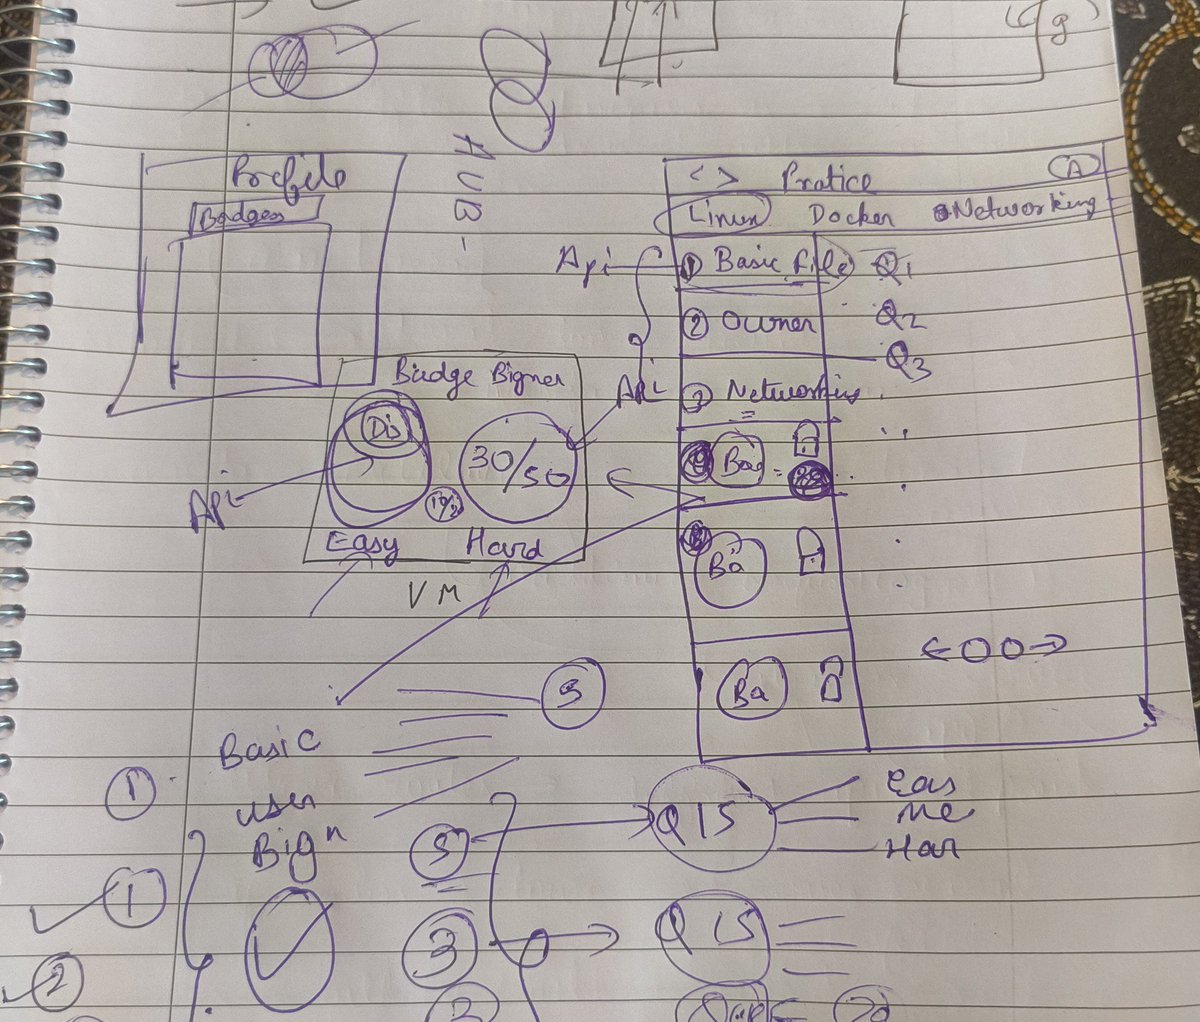 g
Profile
Badges
A V B -
< > Pratice A
Linux Docker Networking
Api
1 Basic file Q1
2 Owner Q2
Q3
3 Networking
Badge Bigner
API
Do
30/50
Ba
Api
10/2
Easy Hard
Ba
V M
Ba
S
Basic
1
user
Bign
S
Q 15
Eas
Me
Har
1
3
Q 15
2
2